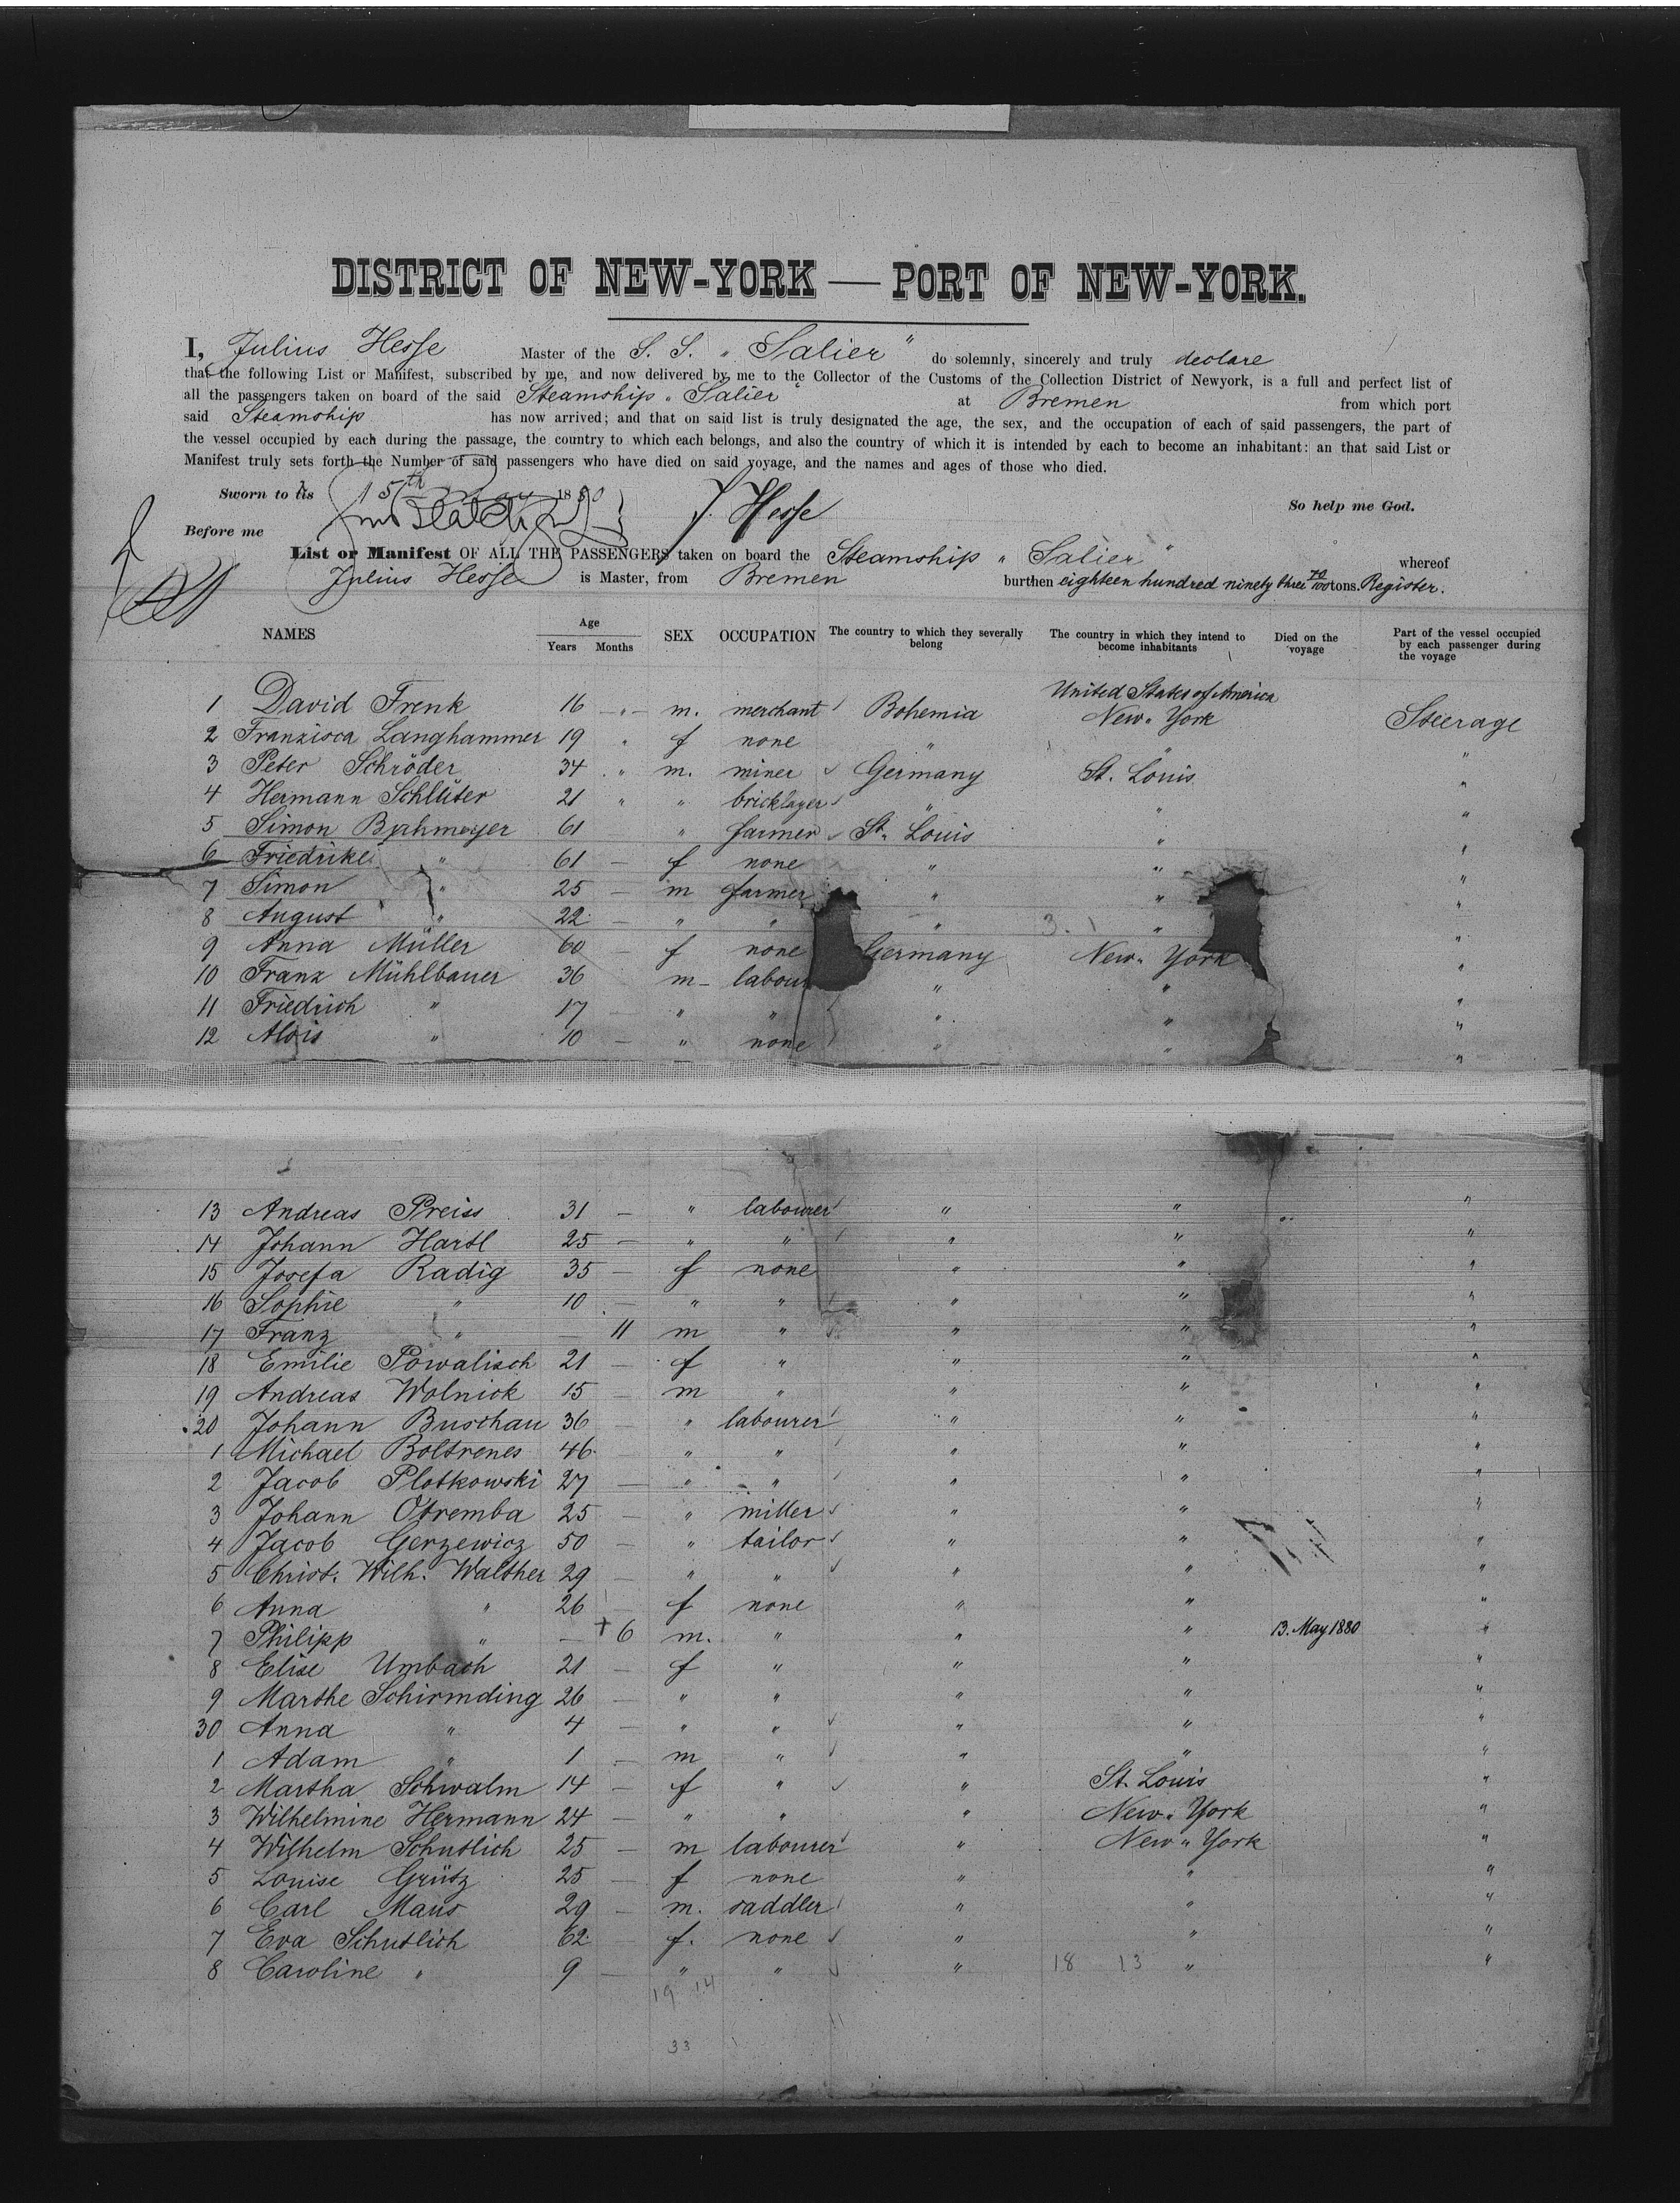 DISTRICT OF NEW-YORK — PORT OF NEW-YORK.
I, Julius Hesse Master of the S. S. „ Salier " do solemnly, sincerely and truly declare
that the following List or Manifest, subscribed by me, and now delivered by me to the Collector of the Customs of the Collection District of Newyork, is a full and perfect list of
all the passengers taken on board of the said Steamship „ Salier at Bremen from which port
said Steamship has now arrived; and that on said list is truly designated the age, the sex, and the occupation of each of said passengers, the part of
the vessel occupied by each during the passage, the country to which each belongs, and also the country of which it is intended by each to become an inhabitant: an that said List or
Manifest truly sets forth the Number of said passengers who have died on said voyage, and the names and ages of those who died.
Sworn to this 15th May 1880 J. Hesse So help me God.
Before me
List or Manifest OF ALL THE PASSENGERS taken on board the Steamship „ Salier " whereof
Julius Hesse is Master, from Bremen burthen eighteen hundred ninety three tons. Register.
NAMES Age Years Months SEX OCCUPATION The country to which they severally belong The country in which they intend to become inhabitants Died on the voyage Part of the vessel occupied by each passenger during the voyage
United States of America
1 David Frenk 16 — " — m. merchant Bohemia New-York Steerage
2 Franzisca Langhammer 19 " f none " " "
3 Peter Schröder 34 " m. miner Germany St. Louis "
4 Hermann Schlüter 21 " " bricklayer " " "
5 Simon 61 " farmer St. Louis " "
6 Friedrike " 61 — f none " " "
7 Simon " 25 — m farmer " " "
8 August " 22 — " " " 3. 1 " "
9 Anna Müller 60 — f none Germany New-York "
10 Franz Mühlbauer 36 m labou " " "
11 Friedrich " 17 — " " " " "
12 Alois " 10 — " none " " "
13 Andreas Preiss 31 — " labourer " " "
14 Johann Hartl 25 — " " " " "
15 Josefa Radig 35 — f none " " "
16 Sophie " 10 — " " " " "
17 Franz " — 11 m " " " "
18 Emilie Powalisch 21 — f " " " "
19 Andreas Wolnick 15 — m " " " "
20 Johann Buschau 36 — " labourer " " "
1 Michael Boltrenes 46 — " " " " "
2 Jacob Plotkowski 27 — " " " " "
3 Johann Otremba 25 — " miller " " "
4 Jacob Gerzewicz 50 — " tailor " " "
5 Christ. Wilh. Walther 29 — " " " " "
6 Anna " 26 f none " " "
7 Philipp " — + 6 m. " " " 13. May 1880 "
8 Elise Umbach 21 — f " " " "
9 Marthe Schirmding 26 — " " " " "
30 Anna " 4 — " " " " "
1 Adam " 1 — m " " " "
2 Martha Schwalm 14 — f " " St. Louis "
3 Wilhelmine Hermann 24 — " " " New-York "
4 Wilhelm Schutlich 25 — m labourer " New-York "
5 Louise Grütz 25 — f none " " "
6 Carl Maus 29 — m. saddler " " "
7 Eva Schutlich 62 — f. none " " "
8 Caroline " 9 — " " " 18 13 " "
19 14
33